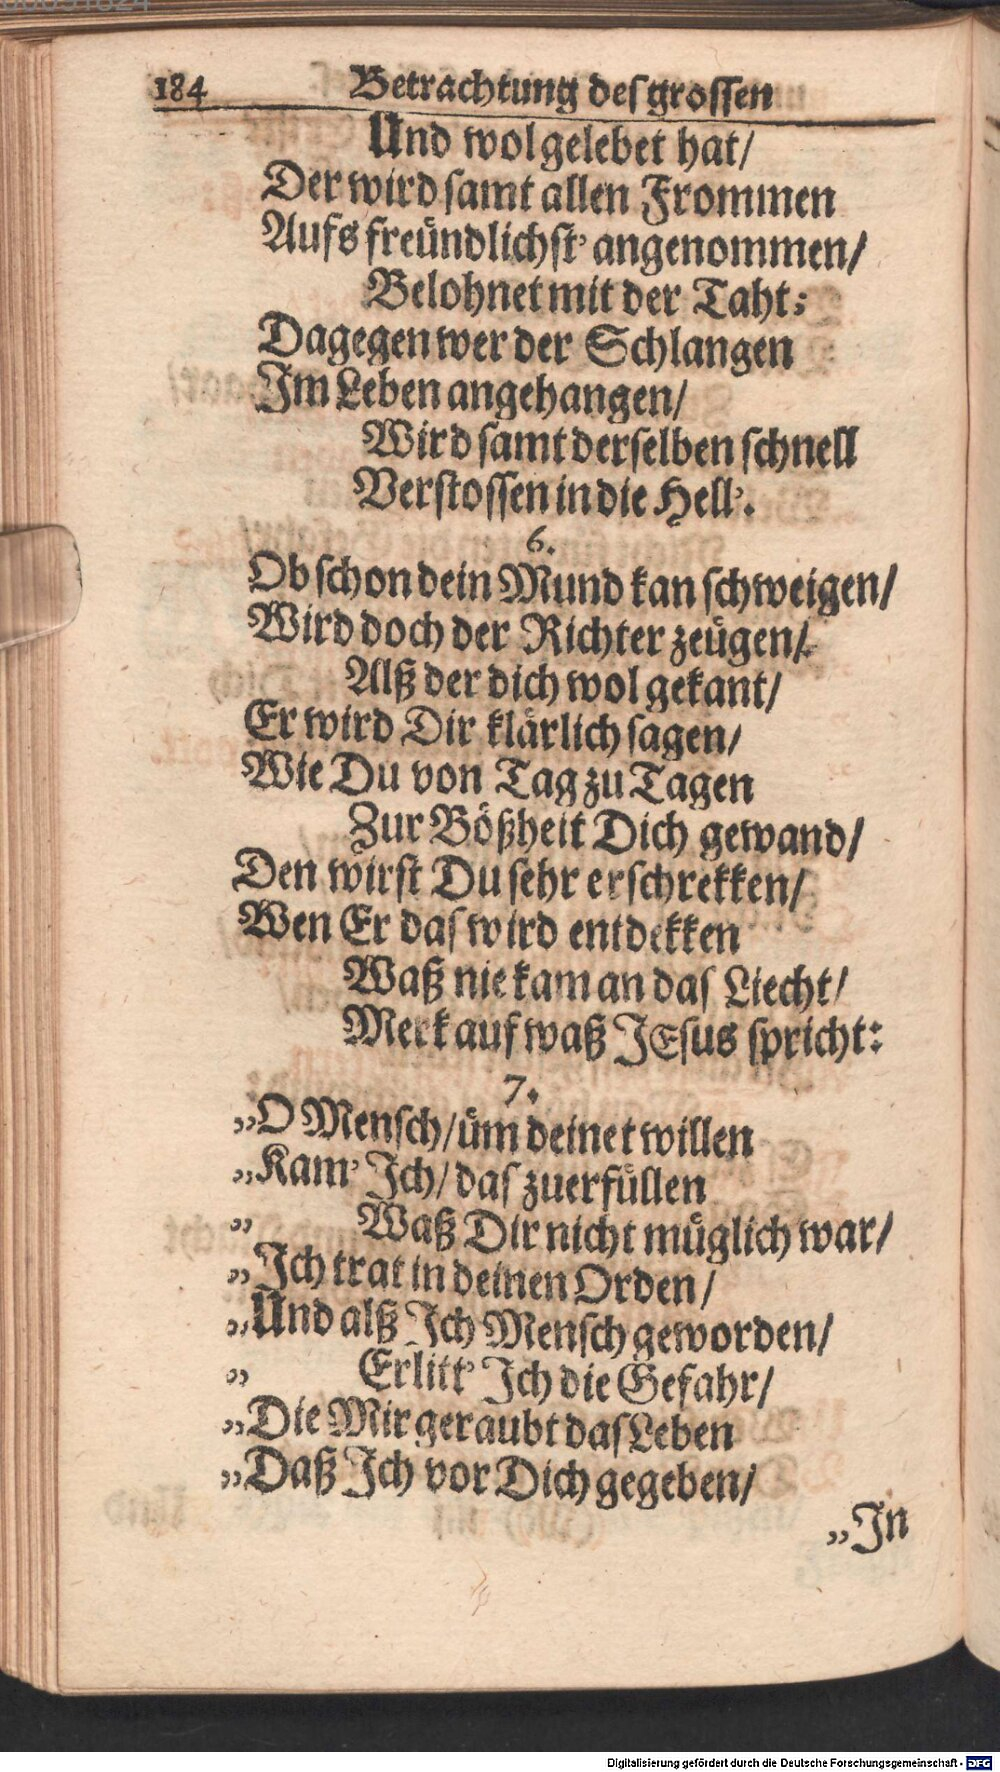 184 Betrachtung des grossen
Und wol gelebet hat/
Der wird samt allen Frommen
Aufs freündlichst' angenommen/
Belohnet mit der Taht;
Dagegen wer der Schlangen
Im Leben angehangen/
Wird samt derselben schnell
Verstossen in die Hell'.
6.
Ob schon dein Mund kan schweigen/
Wird doch der Richter zeügen/
Alß der dich wol gekant/
Er wird Dir klärlich sagen/
Wie Du von Tag zu Tagen
Zur Bößheit Dich gewand/
Den wirst Du sehr erschrekken/
Wen Er das wird entdekken
Waß nie kam an das Liecht/
Merk auf waß JEsus spricht:
7.
„O Mensch/ üm deinet willen
„Kam' Ich/ das zuerfüllen
„ Waß Dir nicht müglich war/
„Ich trat in deinen Orden/
„Und alß Ich Mensch geworden/
„ Erlitt' Ich die Gefahr/
„Die Mir geraubt das Leben
„Daß Ich vor Dich gegeben/
„In
Digitalisierung gefördert durch die Deutsche Forschungsgemeinschaft - DFG